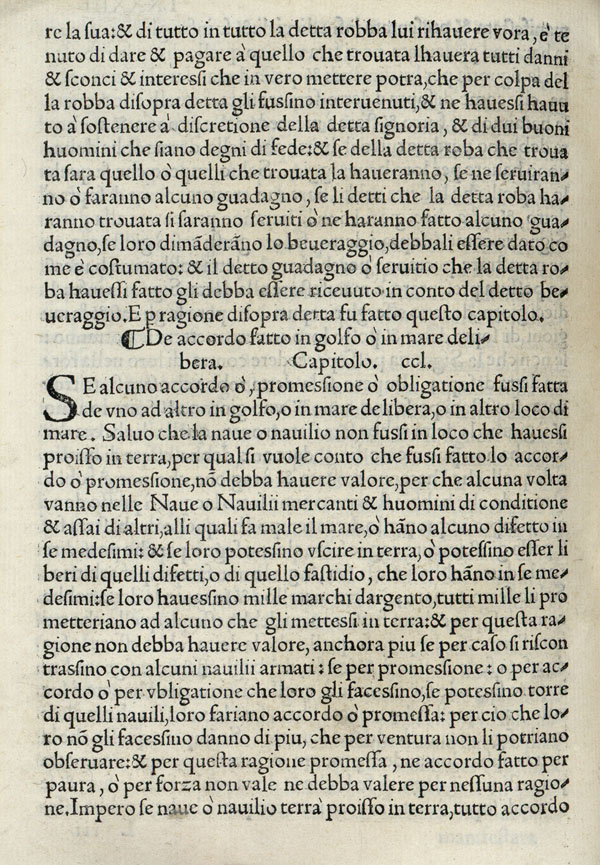 re la sua:& di tutto in tutto la detta robba lui rihauere vora, e' te
nuto di dare & pagare a' quello che trouata lhauera tutti danni
& sconci & interessi che in vero mettere potra,che per colpa del
la robba disopra detta gli fussino interuenuti,& ne hauessi hauu
to a' sostenere a' discretione della detta signoria, & di dui buoni
huomini che siano degni di fede:& se della detta roba che troua
ta sara quello o' quelli che trouata la haueranno, se ne seruiran⸗
no o' faranno alcuno guadagno, se li detti che la detta roba ha⸗
ranno trouata si saranno seruiti o' ne haranno fatto alcuno gua⸗
dagno,se loro dimāderāno lo beueraggio,debbali essere dato co
me e' costumato: & il detto guadagno o' seruitio che la detta ro⸗
ba hauessi fatto gli debba essere riceuuto in conto del detto be⸗
ueraggio.E p ragione disopra detta fu fatto questo capitolo.
⁋De accordo fatto in golfo o' in mare deli⸗
bera. Capitolo. ccl.
SE alcuno accordo o', promessione o' obligatione fussi fatta
de vno ad altro in golfo,o in mare delibera,o in altro loco di
mare. Saluo che la naue o nauilio non fussi in loco che hauessi
proisso in terra,per qual si vuole conto che fussi fatto lo accor⸗
do o' promessione,nō debba hauere valore,per che alcuna volta
vanno nelle Naue o Nauilii mercanti & huomini di conditione
& assai di altri,alli quali fa male il mare,o' hāno alcuno difetto in
se medesimi: & se loro potessino vscire in terra,o' potessino esser li
beri di quelli difetti,o di quello fastidio, che loro hāno in se me⸗
desimi:se loro hauessino mille marchi dargento,tutti mille li pro
metteriano ad alcuno che gli mettessi in terra:& per questa ra⸗
gione non debba hauere valore, anchora piu se per caso si riscon
trassino con alcuni nauilii armati: se per promessione: o per ac⸗
cordo o' per vbligatione che loro gli facessino,se potessino torre
di quelli nauili,loro fariano accordo o' promessa: per cio che lo⸗
ro nō gli facessino danno di piu, che per ventura non li potriano
obseruare:& per questa ragione promessa, ne accordo fatto per
paura, o' per forza non vale ne debba valere per nessuna ragio⸗
ne.Impero se naue o' nauilio terra' proisso in terra,tutto accordo